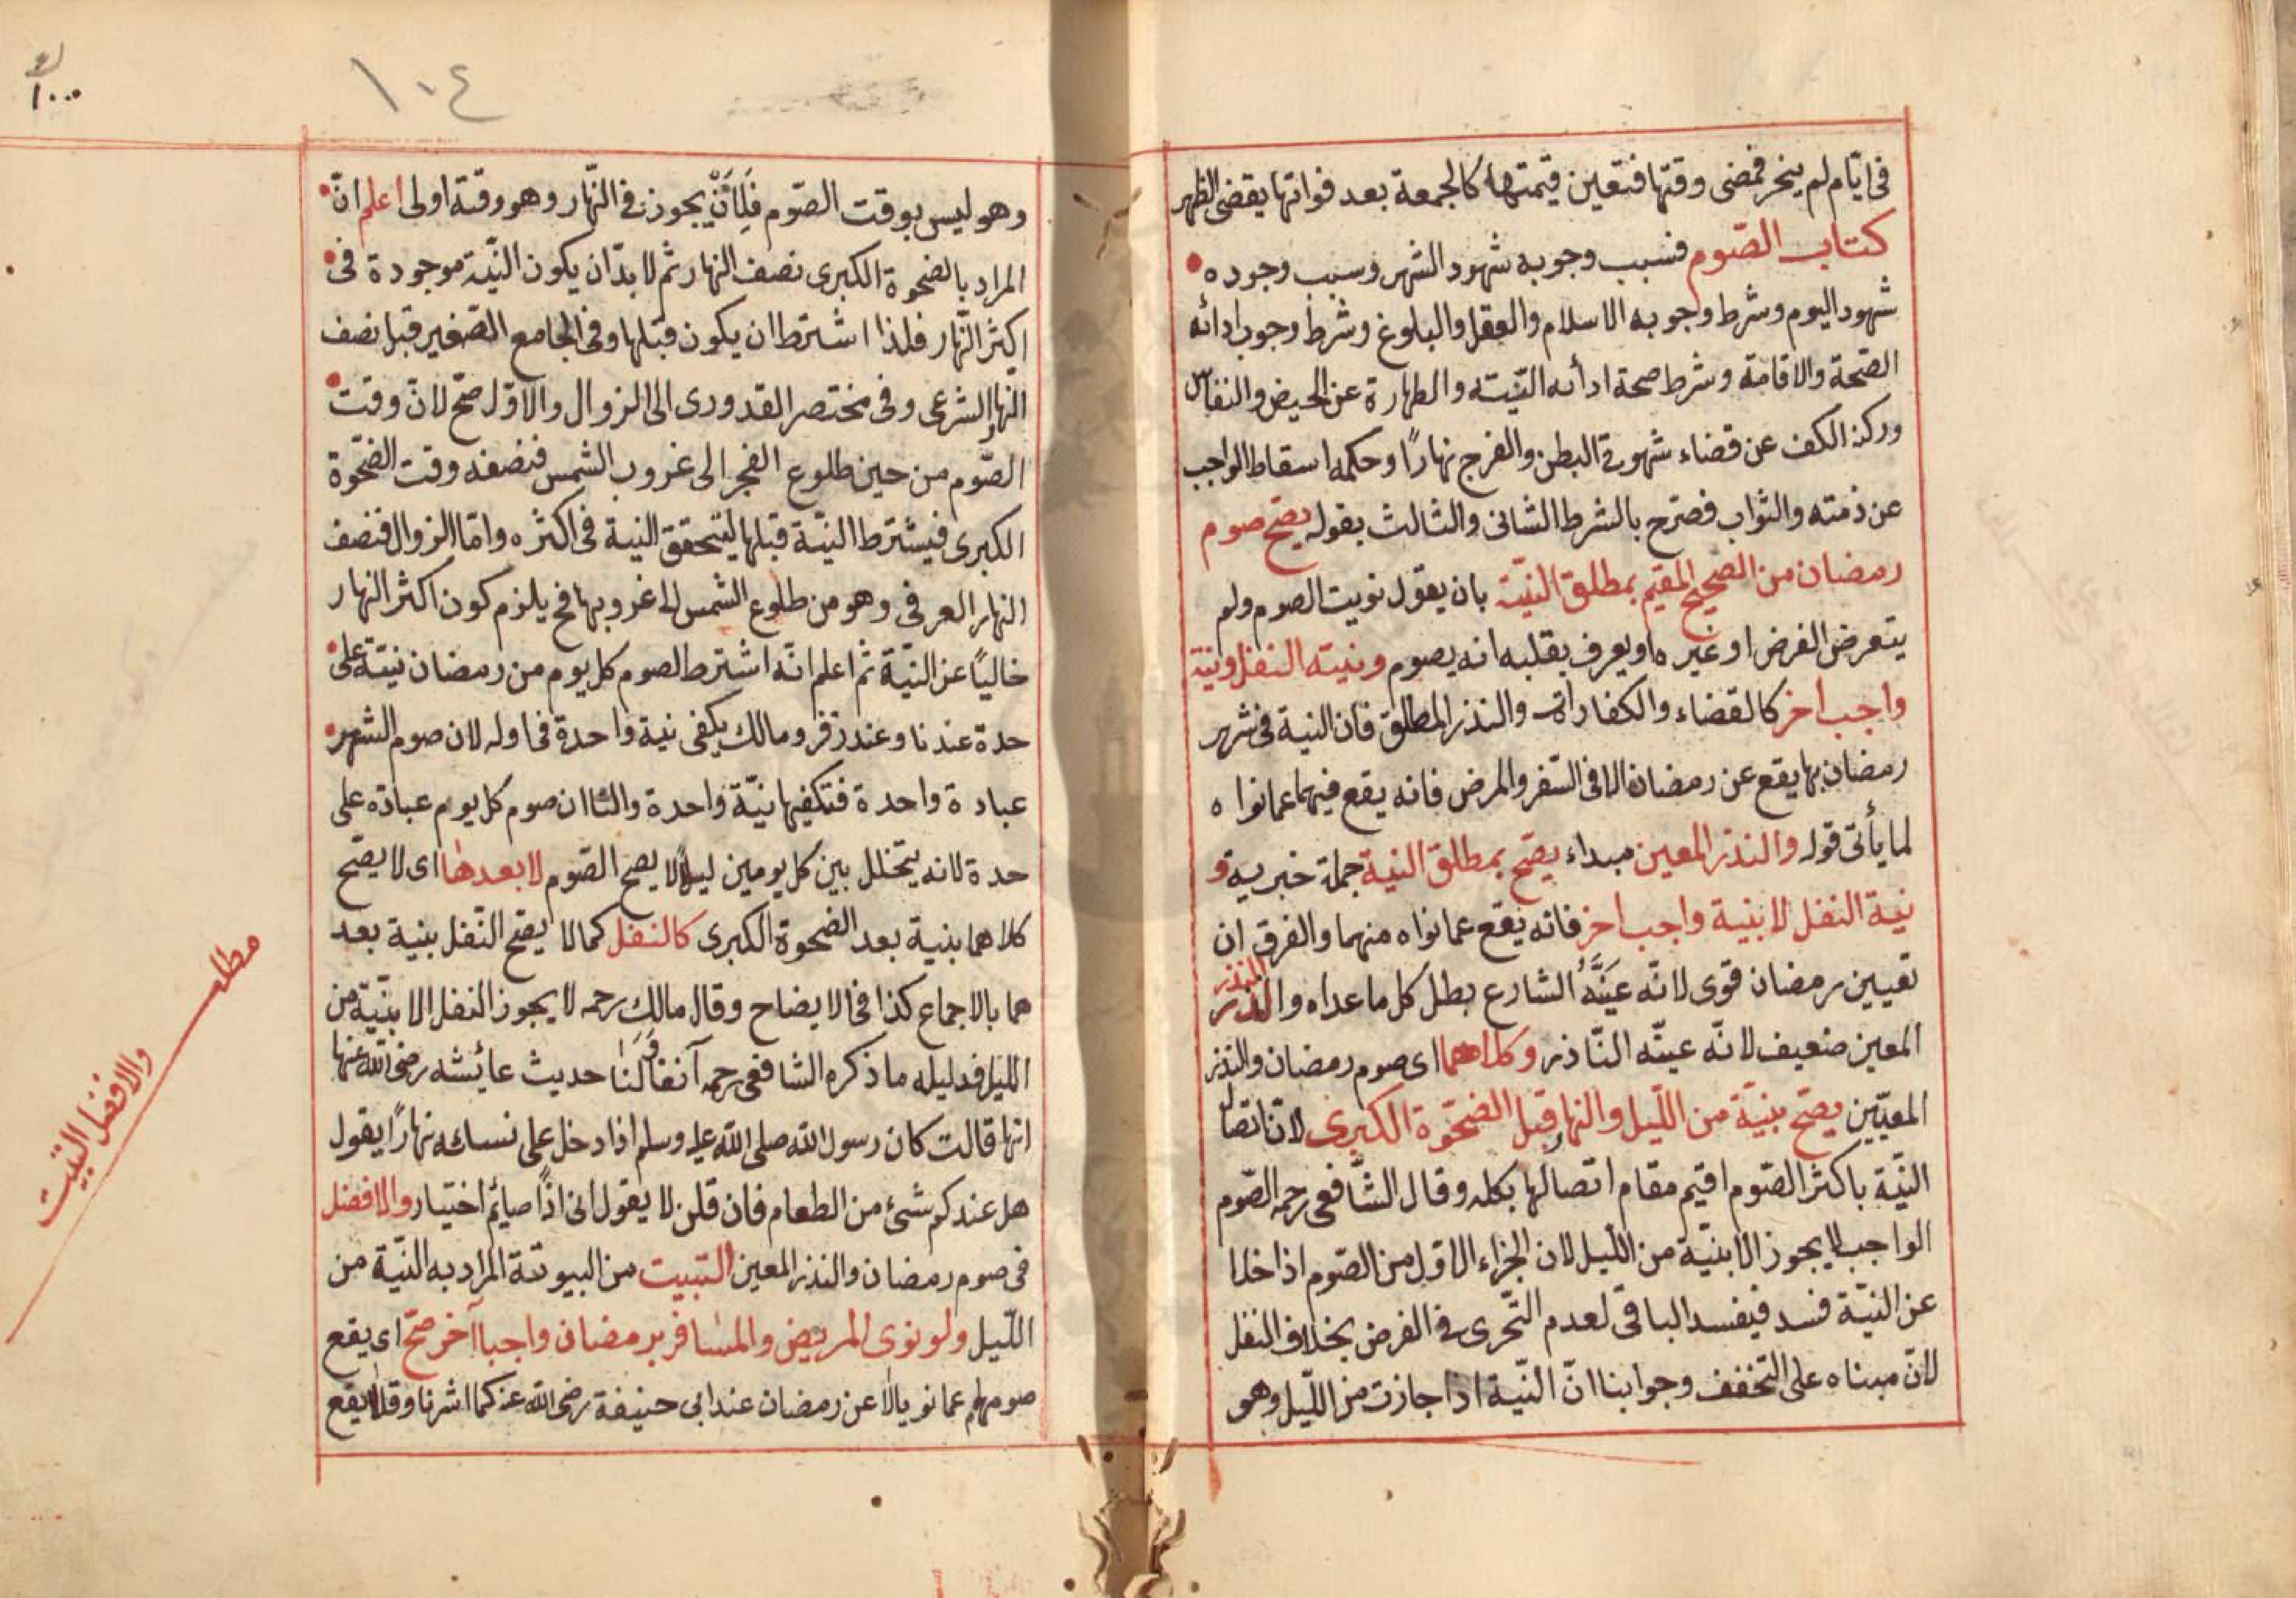 فى ايّام لم ينحر فمضى وقتها فتعين قيمتها كالجمعة بعد فواتها يقضى الظهر
كتاب الصّوم فسبب وجوبه شهود الشهر وسبب وجوده
شهود اليوم وشرط وجوبه الاسلام والعقل والبلوغ وشرط وجوب ادائه
الصّحة والاقامة وشرط صحة ادائه النّيته والطهارة عن الحيض والنفاس
وركنه الكف عن قضاء شهوة البطن والفرج نهارًا وحكمه اسقاط الواجب
عن ذمته والثواب فصرّح بالشرط الثانى والثالث بقوله يصحّ صوم
رمضان من الصحيح المقيم بمطلق النيّة بان يقول نويت الصوم ولم
يتعرض الفرض او غيره او يعرف بقلبه انه يصوم ونيته النفل ونية
واجب اخر كالقضاء والكفارات والنذر المطلق فان النية فى شهر
رمضان بها يقع عن رمضان الا فى السّفر والمرض فانه يقع فيهما عما نواه
لما يأتى قوله والنذر المعين مبداء يصّح بمطلق النية جملة خبرية و
نية النفل لا بنية واجب اخر فانه يقع عما نواه منهما والفرق ان
تعيين رمضان قوى لانّه عيّنه الشارع بطل كل ما عداه والنذر
النذر
المعين ضعيف لانّه عينّه النّاذر وكلاهما اى صوم رمضان والنذر
المعيّين يصّح بنيّة من اللّيل والنهار قبل الضحّوة الكبرى لانّ اتصال
النيّة باكثر الصّوم اقيم مقام اتصالها بكله وقال الشّافعى رحمه الصّوم
الواجب لا يجوز الا بنيّة من اللّيل لان الجزاء الاوّل من الصّوم اذا خلا
عن النيّة فسد فيفسد الباقى لعدم التّحرى فى الفرض بخلاف النفل
لانّ مبناه على التخفف وجوابنا انّ النّية اذا جازت من اللّيل وهو
١٠٤
١٠٠٠
وهو ليس بوقت الصّوم فَلِأَنْ يجوز فى النّهار وهو وقته اولى اعلم انّ
المراد بالضحوة الكبرى نصف النهار ثم لا بدّ ان يكون النّية موجودة فى
اكثر النّهار فلذا اشترط ان يكون قبلها وفى الجامع الصّغير قبل نصف
النهار الشرعى وفى مختصر القدورى الى الزوال والاوّل صّح لانّ وقت
الصّوم من حين طلوع الفجر الى غروب الشمس فنصفه وقت الضّحوة
الكبرى فيشترط النيّة قبلها ليتحقق النية فى اكثره وامّا الزوال فنصف
النهار العرفى وهو من طلوع الشمس الى غروبها فح يلزم كون اكثر النهار
خاليًا عن النيّة ثم اعلم انّه اشترط لصوم كل يوم من رمضان نيتة على
حدة عندنا وعند زفر ومالك يكفى نية واحدة فى اوله لان صوم الشهر
عبادة واحدة فتكفيها نيّة واحدة ولنا ان صوم كل يوم عبادة على
حدة لانه يتخلل بين كل يومين ليلًا لا يصح الصّوم لا بعدها اى لا يصّح
كلاهما بنية بعد الضحوة الكبرى كالنفل كما لا يصّح النّفل بنية بعد
هما بالاجماع كذا فى الايضاح وقال مالك رحمه لا يجوز النفل الا بنيّة من
اللّيل فدليله ما ذكره الشافعى رحمه آنفا ولَنَا حديث عائشه رضى الله عنها
انها قالت كان رسول الله صلى الله عليه وسلم اذا دخل على نسائه نهارًا يقول
هل عندكم شئ من الطعام فان قلن لا يقول انى اذًا صائم اختيار والافضل
فى صوم رمضان والنذر المعين التبيت من البيوتة المراد به النّية من
اللّيل ولو نوى المريض والمسافر برمضان واجبا آخر صحّ اى يقع
صومهم عما نويا لا عن رمضان عند ابى حنيفة رضى الله عنه كما اشرنا وقالا يقع
مطلب
والافضل التبيت